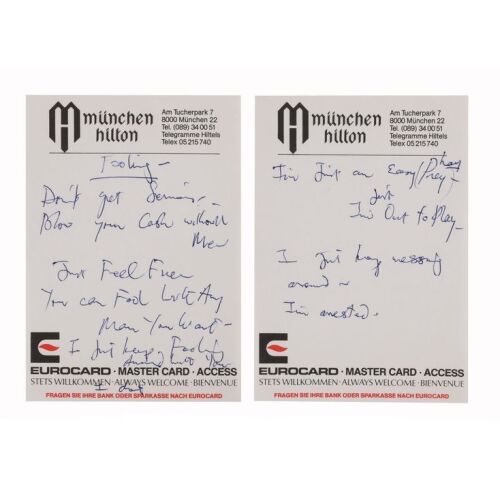 münchen
hilton
Am Tucherpark 7
8000 München 22
Tel. (089) 34 00 51
Telegramme Hiltels
Telex 05 215 740
Fooling -
Don't get Serious -
Blow your Cash without
Men
Just Feel Free
You can Fool with Any
Man You Want -
I Just keep Fooling
Around with You
I
EUROCARD · MASTER CARD · ACCESS
STETS WILLKOMMEN · ALWAYS WELCOME · BIENVENUE
FRAGEN SIE IHRE BANK ODER SPARKASSE NACH EUROCARD
münchen
hilton
Am Tucherpark 7
8000 München 22
Tel. (089) 34 00 51
Telegramme Hiltels
Telex 05 215 740
I'm Just an Easy Prey -
Just
I'm Out to Play -
I Just keep messing
around -
I'm arrested.
EUROCARD · MASTER CARD · ACCESS
STETS WILLKOMMEN · ALWAYS WELCOME · BIENVENUE
FRAGEN SIE IHRE BANK ODER SPARKASSE NACH EUROCARD